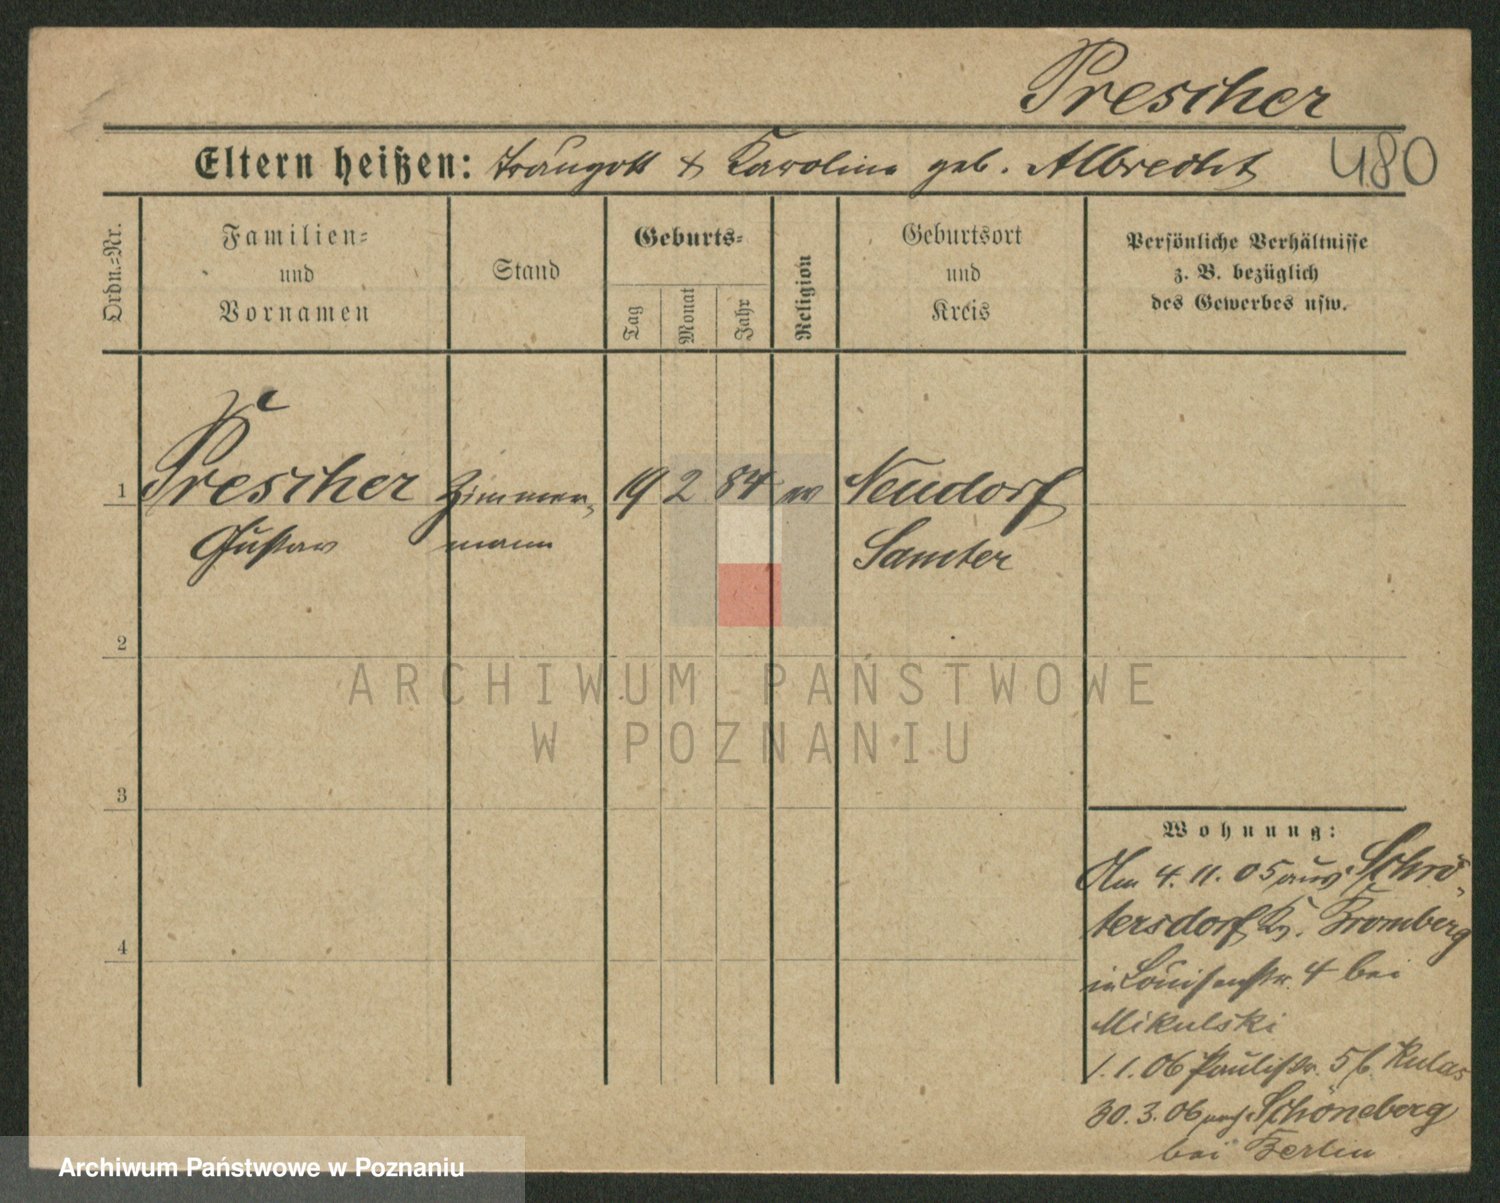 Prescher
Eltern heißen: Traugott & Karoline geb. Albrecht
480
Ordn.=Nr.
Familien=
und
Vornamen
Stand
Geburts=
Tag
Monat
Jahr
Religion
Geburtsort
und
Kreis
Persönliche Verhältnisse
z. B. bezüglich
des Gewerbes usw.
1 Prescher Zimmer= 19 2 84 ev Neudorf
Gustav mann Samter
2
3
4
Wohnung:
Am 4. 11. 05 aus Schrö=
tersdorf Kr. Bromberg
in Louisenstr. 4 bei
Mikulski
1.1.06 Paulistr. 5 b. Kulas
30.3.06 nach Schöneberg
bei Berlin
ARCHIWUM PAŃSTWOWE
W POZNANIU
Archiwum Państwowe w Poznaniu